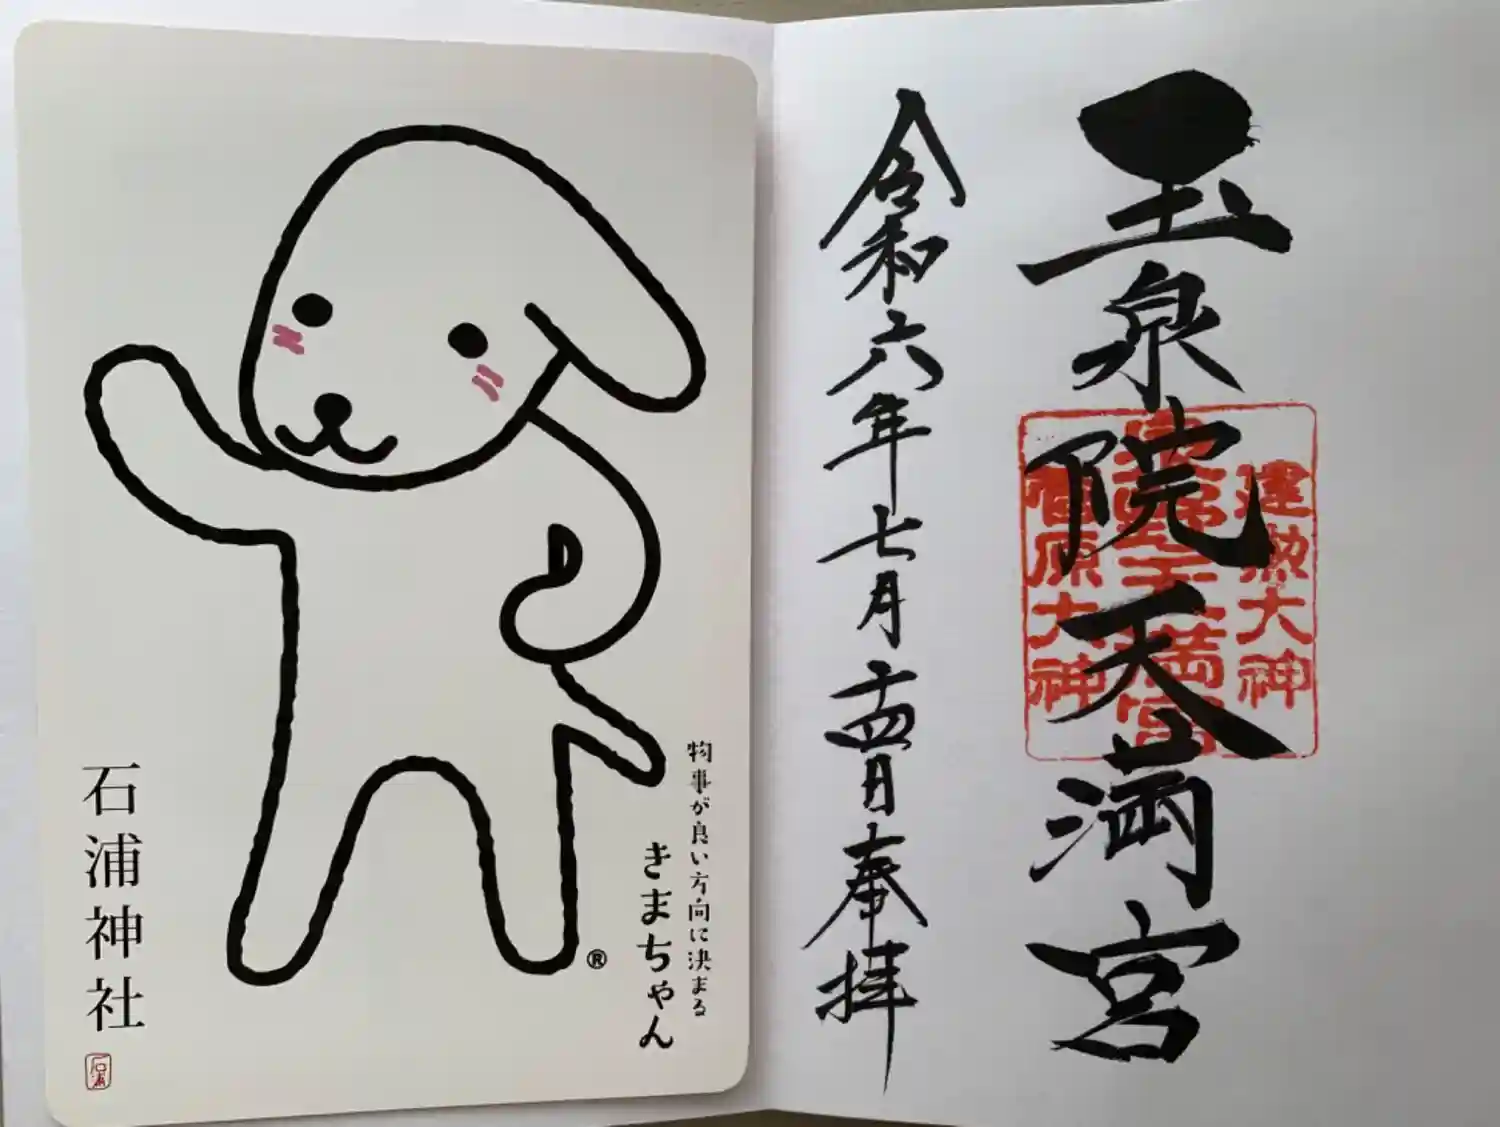 玉泉院天満宮
建勲大神
菅原大神
令和六年七月十四日奉拝
物事が良い方向に決まる
きまちゃん
®
石浦神社
石浦